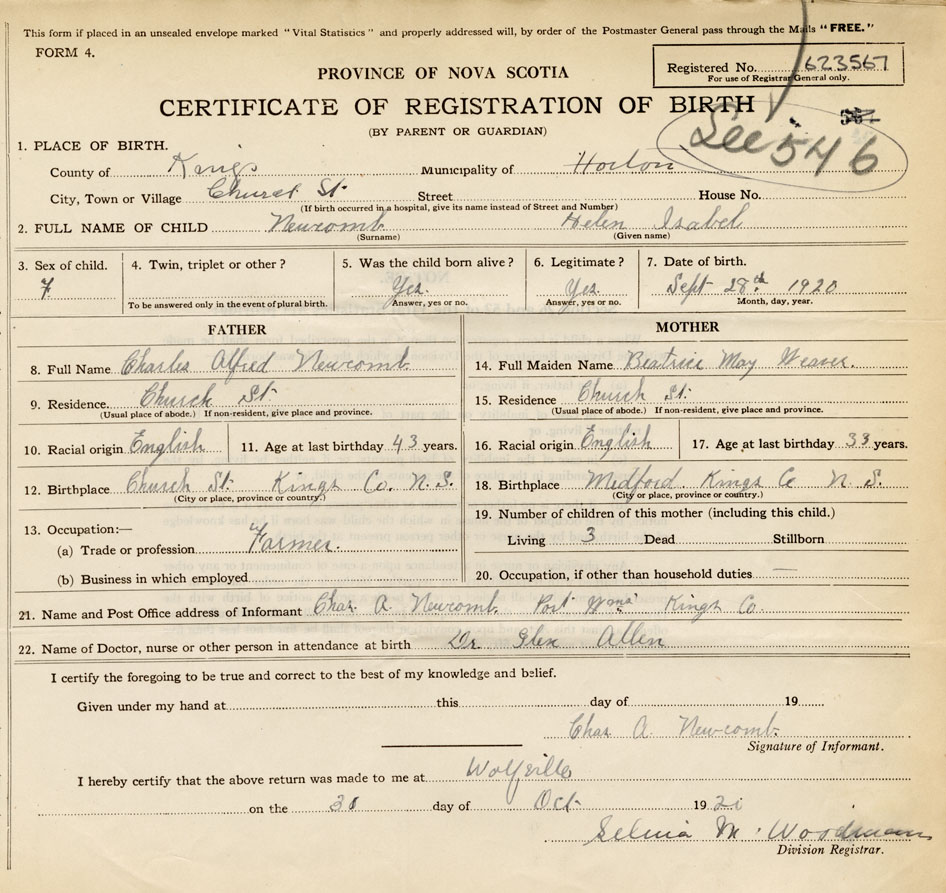 This form if placed in an unsealed envelope marked "Vital Statistics" and properly addressed will, by order of the Postmaster General pass through the Mails "FREE."
FORM 4.
Registered No. 623567
For use of Registrar General only.
PROVINCE OF NOVA SCOTIA
CERTIFICATE OF REGISTRATION OF BIRTH
(BY PARENT OR GUARDIAN)
See 546
1. PLACE OF BIRTH.
County of Kings Municipality of Horton
City, Town or Village Church St. Street House No.
(If birth occurred in a hospital, give its name instead of Street and Number)
2. FULL NAME OF CHILD Newcomb Helen Isabel
(Surname) (Given name)
3. Sex of child. 4. Twin, triplet or other? 5. Was the child born alive? 6. Legitimate? 7. Date of birth.
F. Yes. Yes Sept 28th 1920
To be answered only in the event of plural birth. Answer, yes or no. Answer, yes or no. Month, day, year.
FATHER MOTHER
8. Full Name Charles Alfred Newcomb 14. Full Maiden Name Beatrice May Weaver.
9. Residence. Church St. 15. Residence Church St.
(Usual place of abode.) If non-resident, give place and province. (Usual place of abode.) If non-resident, give place and province.
10. Racial origin English 11. Age at last birthday 43 years. 16. Racial origin English 17. Age at last birthday 33 years.
12. Birthplace Church St. Kings Co. N.S. 18. Birthplace Medford Kings Co N.S.
(City or place, province or country.) (City or place, province or country.)
13. Occupation:— 19. Number of children of this mother (including this child.)
(a) Trade or profession Farmer. Living 3 Dead Stillborn
(b) Business in which employed 20. Occupation, if other than household duties —
21. Name and Post Office address of Informant Chas. A. Newcomb Port Wms Kings Co
22. Name of Doctor, nurse or other person in attendance at birth Dr. Allen
I certify the foregoing to be true and correct to the best of my knowledge and belief.
Given under my hand at this day of 19
Chas A. Newcomb.
Signature of Informant.
I hereby certify that the above return was made to me at Wolfville
on the day of Oct. 19
M. Woodman
Division Registrar.